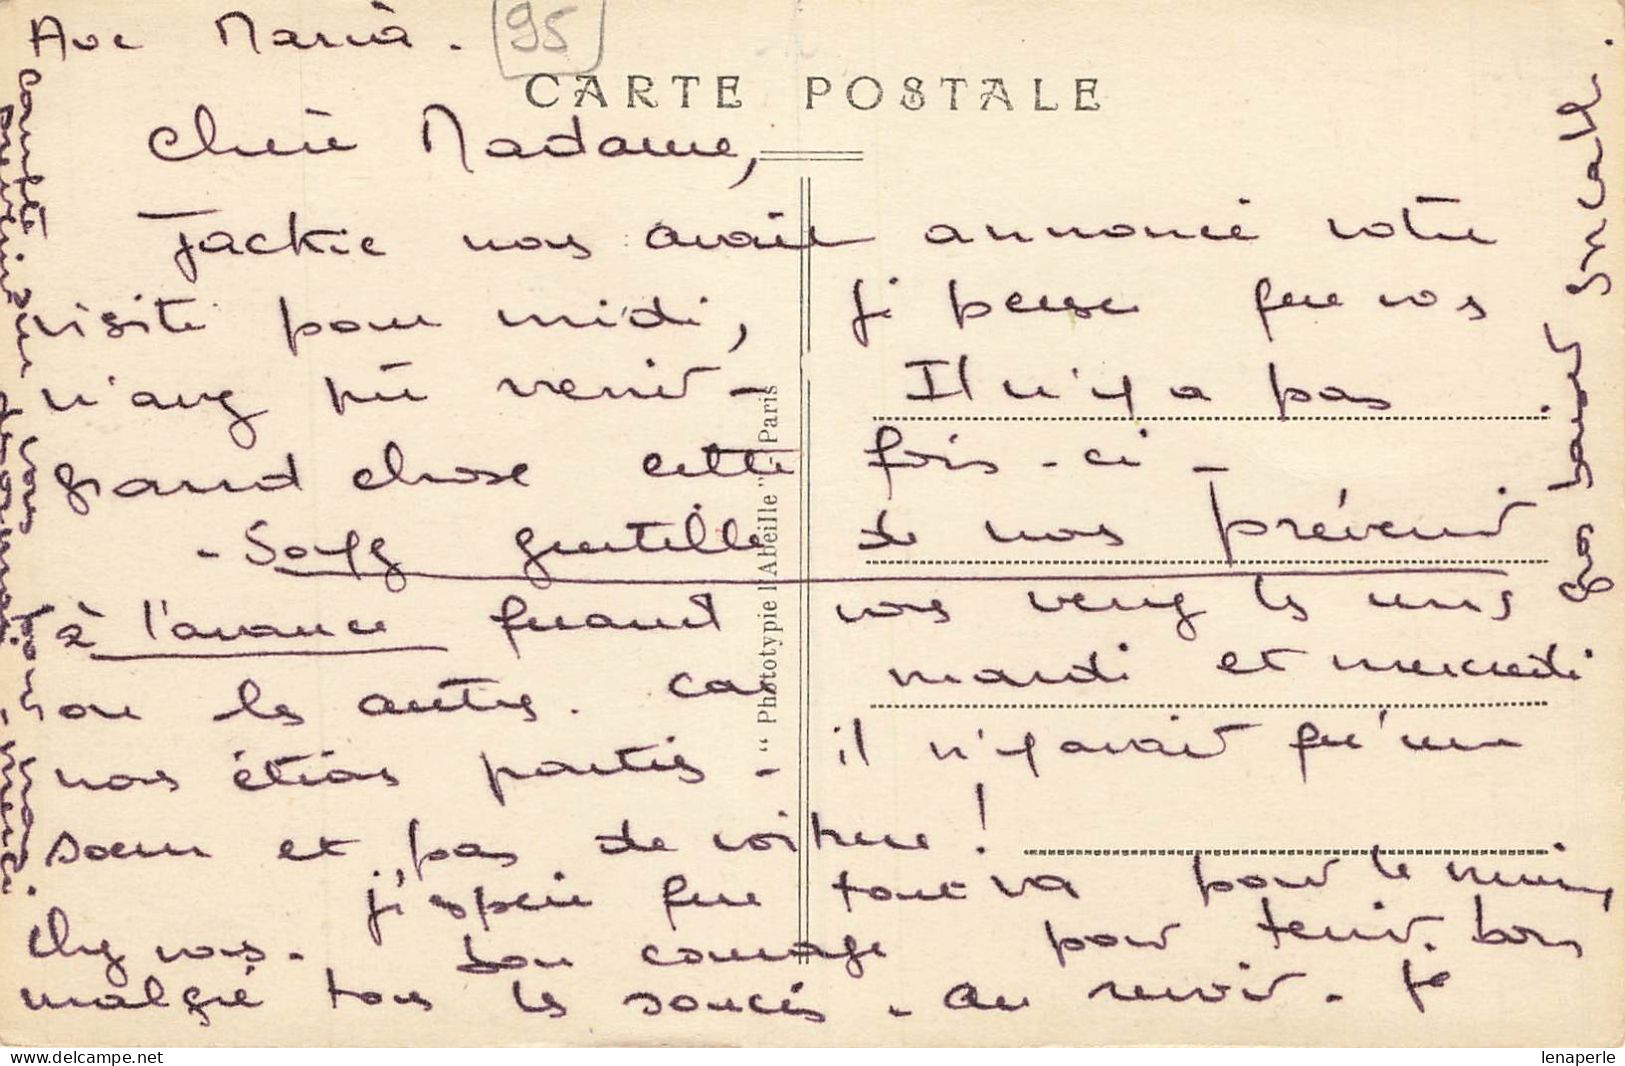 Ave Maria.
95
CARTE POSTALE
Chère Madame,
Jackie nous avait annoncé votre
visite pour midi, je pense que vous
n'avez pu venir - Il n'y a pas
grand chose cette fois-ci -
- Soyez gentille de nous prévenir
à l'avance quand vous venez les uns
ou les autres. Car mardi et mercredi
nous étions parties - il n'y avait qu'une
sœur et pas de voiture !
j'espère que tout va pour le mieux,
chez vous. bon courage pour tenir bon
malgré tous les soucis - au revoir. Je
compte sur vous pour
gros baisers
"Phototypie l'Abeille" - Paris
https://www.delcampe.net
lenaperle